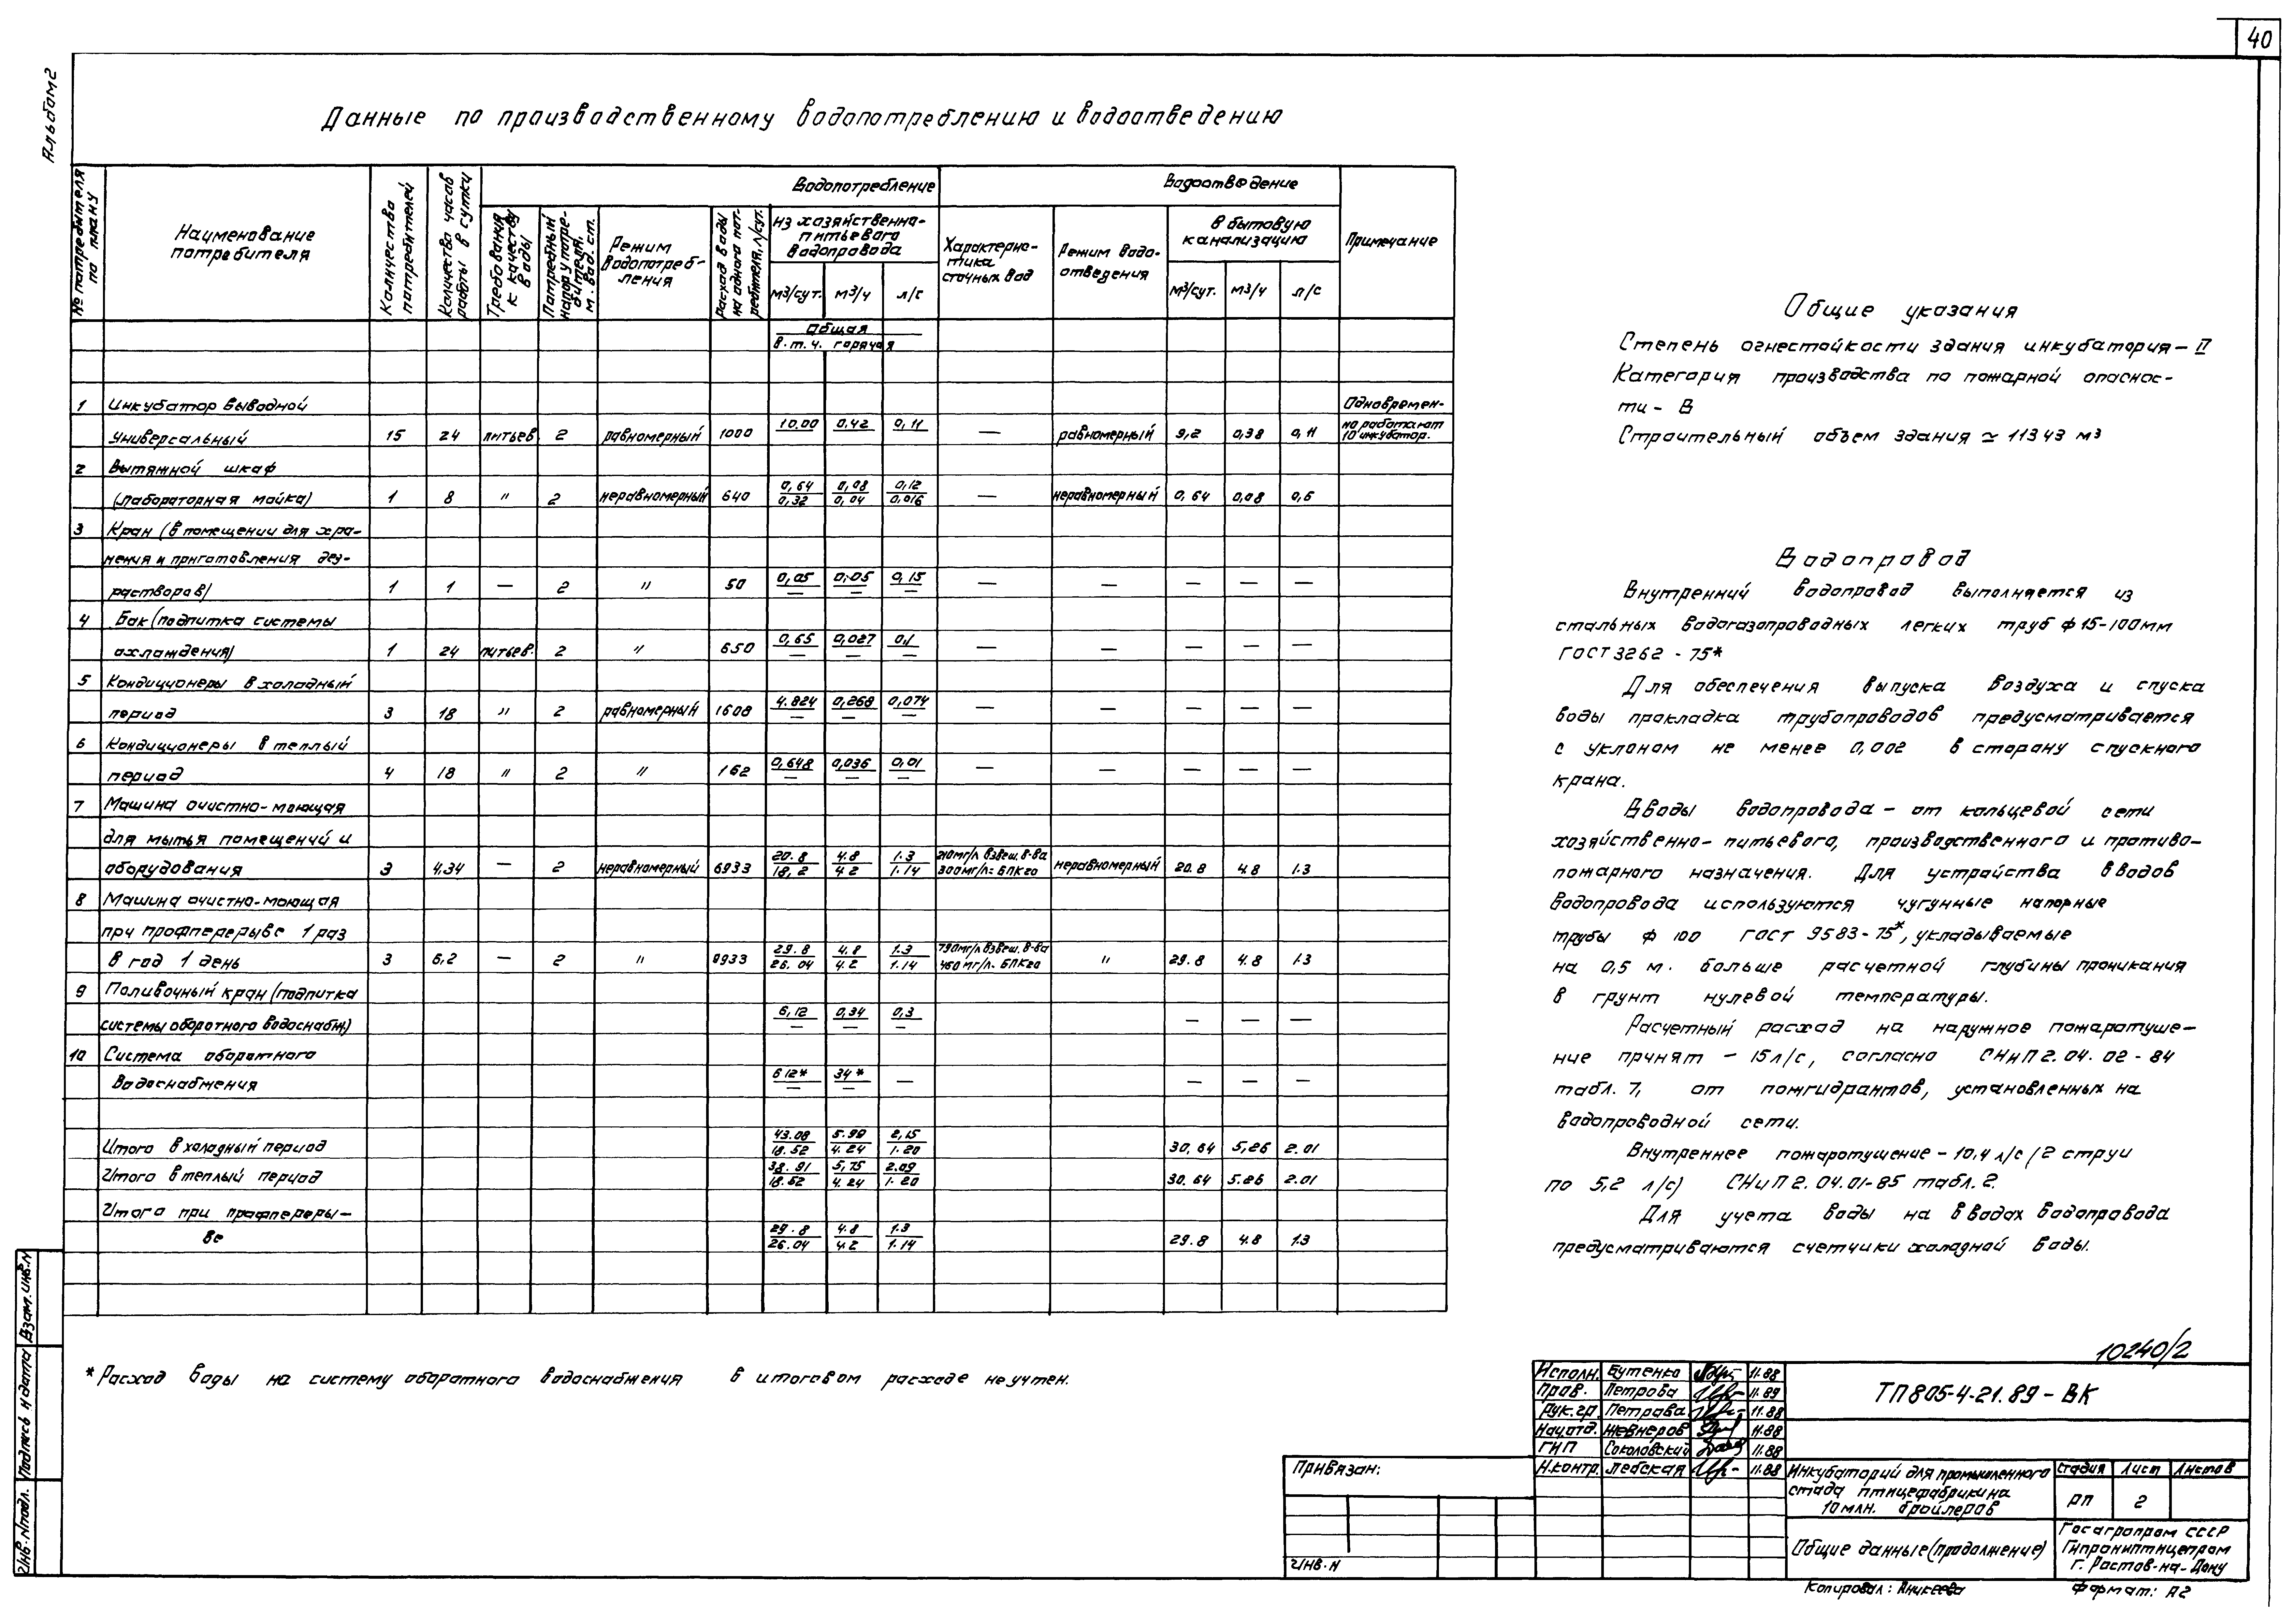 40
Альбом 2
Данные по производственному водопотреблению и водоотведению
№ потребителя по плану
Наименование потребителя
Количество потребителей
Количество часов работы в сутки
Водопотребление
Требования к качеству воды
Потребный напор у потребителя, м. вод. ст.
Режим водопотребления
Расход воды на одного потребителя, л/сут.
Из хозяйственно-питьевого водопровода
м³/сут. м³/ч л/с
Водоотведение
Характеристика сточных вод
Режим водоотведения
в бытовую канализацию
м³/сут. м³/ч л/с
Примечание
Общая
в.т.ч. горячая
1 Инкубатор выводной Одновремен-
универсальный 15 24 питьев 2 равномерный 1000 10.00 0,42 0,11 — равномерный 9,2 0,38 0,11 но работают 10 инкубатор.
2 Вытяжной шкаф
(лабораторная мойка) 1 8 " 2 неравномерный 640 0,64/0,32 0,08/0,04 0,12/0,016 — неравномерный 0,64 0,08 0,6
3 Кран (в помещении для хра-
нения и приготовления дез-
растворов) 1 1 — 2 " 50 0,05/— 0,05/— 0,15/— — — — — —
4 Бак (подпитка системы
охлаждения) 1 24 питьев. 2 " 650 0,65/— 0,027/— 0,1/— — — — — —
5 Кондиционеры в холодный
период 3 18 " 2 равномерный 1608 4.824/— 0,268/— 0,074/— — — — — —
6 Кондиционеры в теплый
период 4 18 " 2 " 162 0,648/— 0,036/— 0,01/— — — — — —
7 Машина очистно-моющая
для мытья помещений и
оборудования 3 4,34 — 2 неравномерный 6933 20.8/18,2 4.8/4.2 1.3/1.14 210мг/л взвеш. в-ва 300мг/л= БПК20 неравномерный 20.8 4.8 1.3
8 Машина очистно-моющая
при профперерыве 1 раз
в год 1 день 3 6,2 — 2 " 9933 29.8/26.04 4.8/4.2 1.3/1.14 790мг/л взвеш. в-ва 460мг/л. БПК20 " 29.8 4.8 1.3
9 Поливочный кран (подпитка
системы оборотного водоснабж.) 6,12/— 0,34/— 0,3/— — — —
10 Система оборотного
водоснабжения 612*/— 34*/— — — — —
Итого в холодный период 43.08/18.52 5.99/4.24 2,15/1.20 30,64 5,26 2.01
Итого в теплый период 38.91/18.52 5,75/4.24 2.09/1.20 30.64 5.26 2.01
Итого при профпереры-
ве 29.8/26.04 4.8/4.2 1.3/1.14 29.8 4.8 1.3
* Расход воды на систему оборотного водоснабжения в итоговом расходе не учтен.
Общие указания
Степень огнестойкости здания инкубатория – II
Категория производства по пожарной опаснос-
ти – В
Строительный объем здания ≃ 11343 м³
Водопровод
Внутренний водопровод выполняется из
стальных водогазопроводных легких труб ф 15-100мм
ГОСТ 3262 - 75*
Для обеспечения выпуска воздуха и спуска
воды прокладка трубопроводов предусматривается
с уклоном не менее 0,002 в сторону спускного
крана.
Вводы водопровода – от кольцевой сети
хозяйственно-питьевого, производственного и противо-
пожарного назначения. Для устройства вводов
водопровода используются чугунные напорные
трубы ф 100 ГОСТ 9583-75*, укладываемые
на 0,5 м. больше расчетной глубины проникания
в грунт нулевой температуры.
Расчетный расход на наружное пожаротуше-
ние принят – 15л/с, согласно СНиП 2.04.02-84
табл. 7, от пожгидрантов, установленных на
водопроводной сети.
Внутреннее пожаротушение – 10,4 л/с (2 струи
по 5,2 л/с) СНиП 2.04.01-85 табл. 2.
Для учета воды на вводах водопровода
предусматриваются счетчики холодной воды.
10240/2
Исполн. Бутенко 11.88
Пров. Петрова 11.89
Рук.гр. Петрова 11.88
Нач.отд. Жевнеров 11.88
ГИП Соколовский 11.88
Н.контр. Лебская 11.88
ТП 805-4-21.89 - ВК
Инкубаторий для промышленного
стада птицефабрики на
10 млн. бройлеров
стадия лист листов
РП 2
Общие данные (продолжение)
Госагропром СССР
Гипрониптицепром
г. Ростов-на-Дону
Привязан:
Инв. N
Копировал: Аникеева
Формат: А2
Взам. инв. N
Подпись и дата
Инв. N подл.